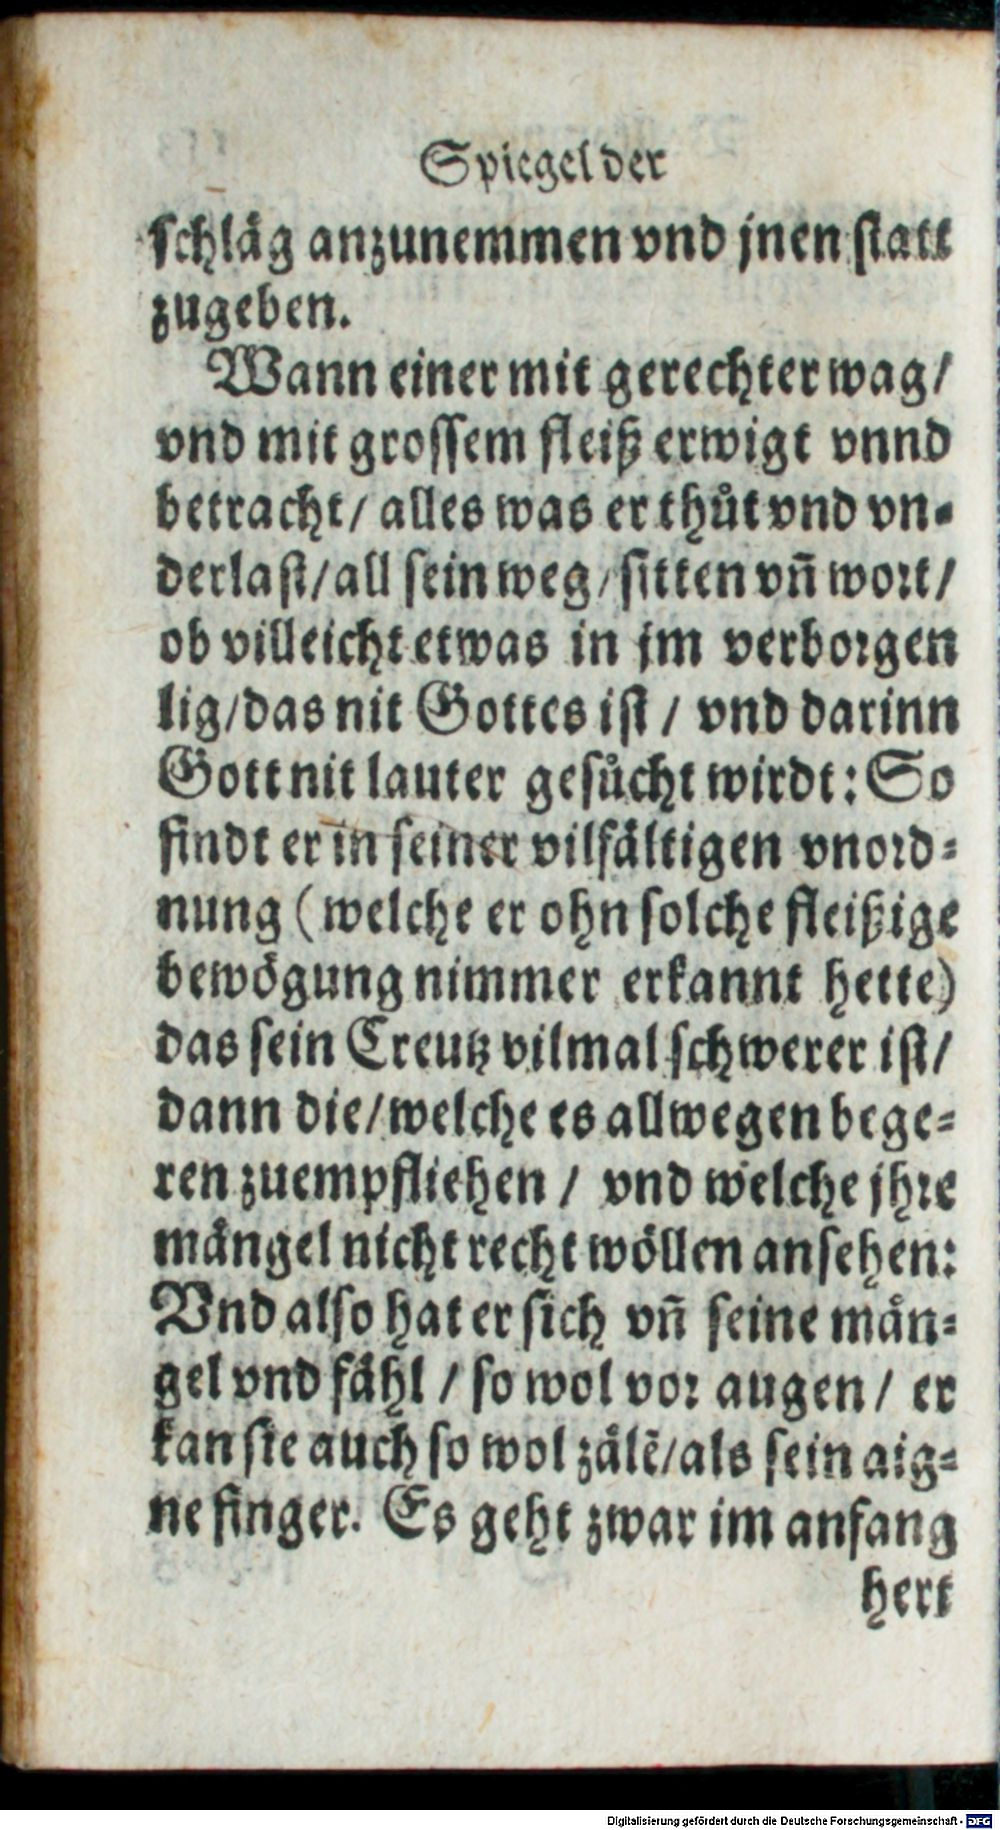 Spiegel der
schläg anzunemmen vnd jnen statt
zugeben.
Wann einer mit gerechter wag/
vnd mit grossem fleiß erwigt vnnd
betracht/ alles was er thůt vnd vn-
derlast/ all sein weg/ sitten vñ wort/
ob villeicht etwas in jm verborgen
lig/ das nit Gottes ist / vnd darinn
Gott nit lauter gesůcht wirdt: So
findt er in seiner vilfältigen vnord-
nung (welche er ohn solche fleißige
bewögung nimmer erkannt hette)
das sein Creutz vilmal schwerer ist/
dann die/ welche es allwegen bege-
ren zuempfliehen / vnd welche jhre
mängel nicht recht wöllen ansehen:
Vnd also hat er sich vñ seine män-
gel vnd fähl / so wol vor augen/ er
kan sie auch so wol zälẽ/ als sein aig-
ne finger. Es geht zwar im anfang
hert
Digitalisierung gefördert durch die Deutsche Forschungsgemeinschaft - DFG